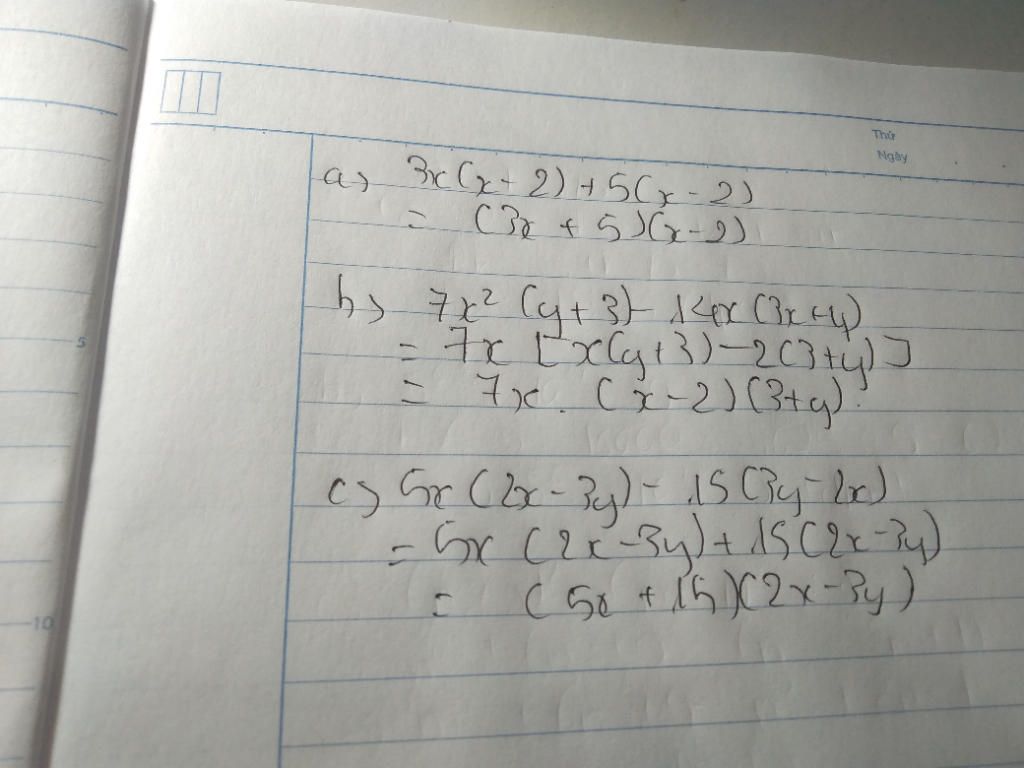 Thứ
Ngày
a) 3x(x - 2) + 5(x - 2)
= (3x + 5)(x - 2)
b) 7x² (y + 3) - 14x (3x + y)
= 7x [ x(y + 3) - 2(3 + y) ]
= 7x . (x - 2)(3 + y).
c) 5x (2x - 3y) - 15 (3y - 2x)
= 5x (2x - 3y) + 15 (2x - 3y)
= (5x + 15)(2x - 3y)
5
10